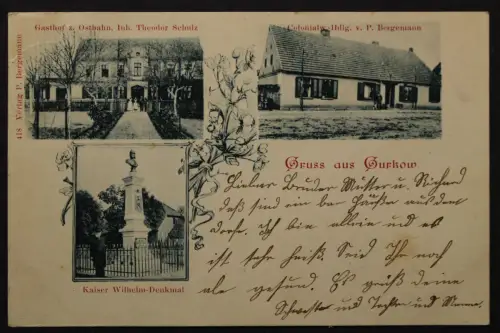 Gasthof z. Ostbahn, Inh. Theodor Schulz
Colonialw.-Hdlg. v. P. Bergemann
418 Verlag P. Bergemann
Gruss aus Gurkow
Lieber Bruder Mutter u. Richard
daß sind ein par Häuser aus dem
Dorfe. Ich bin allein und es
ist sehr heiß. Seid Ihr noch
alle gesund. Es grüß deine
Schwester und Tochter und
Kaiser Wilhelm-Denkmal